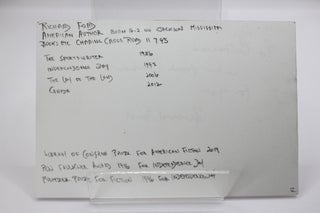 RICHARD FORD
AMERICAN AUTHOR BORN 16.2.44 JACKSON MISSISSIPPI
BOOKS ETC CHARING CROSS ROAD 11 7 95
THE SPORTSWRITER 1986
INDEPENDENCE DAY 1995
THE LAY OF THE LAND 2006
CANADA 2012
LIBRARY OF CONGRESS PRIZE FOR AMERICAN FICTION 2019
PEN FAULKNER AWARD 1996 FOR INDEPENDENCE DAY
PULITZER PRIZE FOR FICTION 1996 FOR INDEPENDENCE DAY